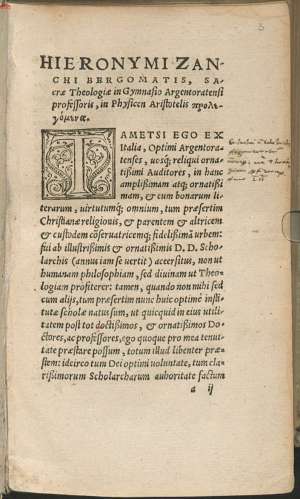 HIERONYMI ZAN-
CHI BERGOMATIS, SA-
cræ Theologiæ in Gymnasio Argentoratensi
professoris, in Physicen Aristotelis προλε-
γόμενα.
TAMETSI EGO EX
Italia, Optimi Argentora-
tenses, uosq; reliqui orna-
tißimi Auditores, in hanc
amplißimam atq; ornatißi
mam, & cum bonarum li-
terarum, uirtutumq; omnium, tum præsertim
Christianæ religionis, & parentem & altricem
& custodem cōseruatricemq; fidelißimā urbem:
fui ab illustrißimis & ornatißimis D. D. Scho-
larchis (annus iam se uertit) accersitus, non ut
humanam philosophiam, sed diuinam ut Theo-
logiam profiterer: tamen, quando non mihi sed
cum alijs, tum præsertim nunc huic optimè insti-
tutæ scholæ natus sum, ut quicquid in eius utili-
tatem post tot doctißimos, & ornatißimos Do-
ctores, ac professores, ego quoque pro mea tenui-
tate præstare possum, totum illud libenter præ-
stem: idcirco tum Dei optimi uoluntate, tum cla-
rißimorum Scholarcharum authoritate factum
a ij